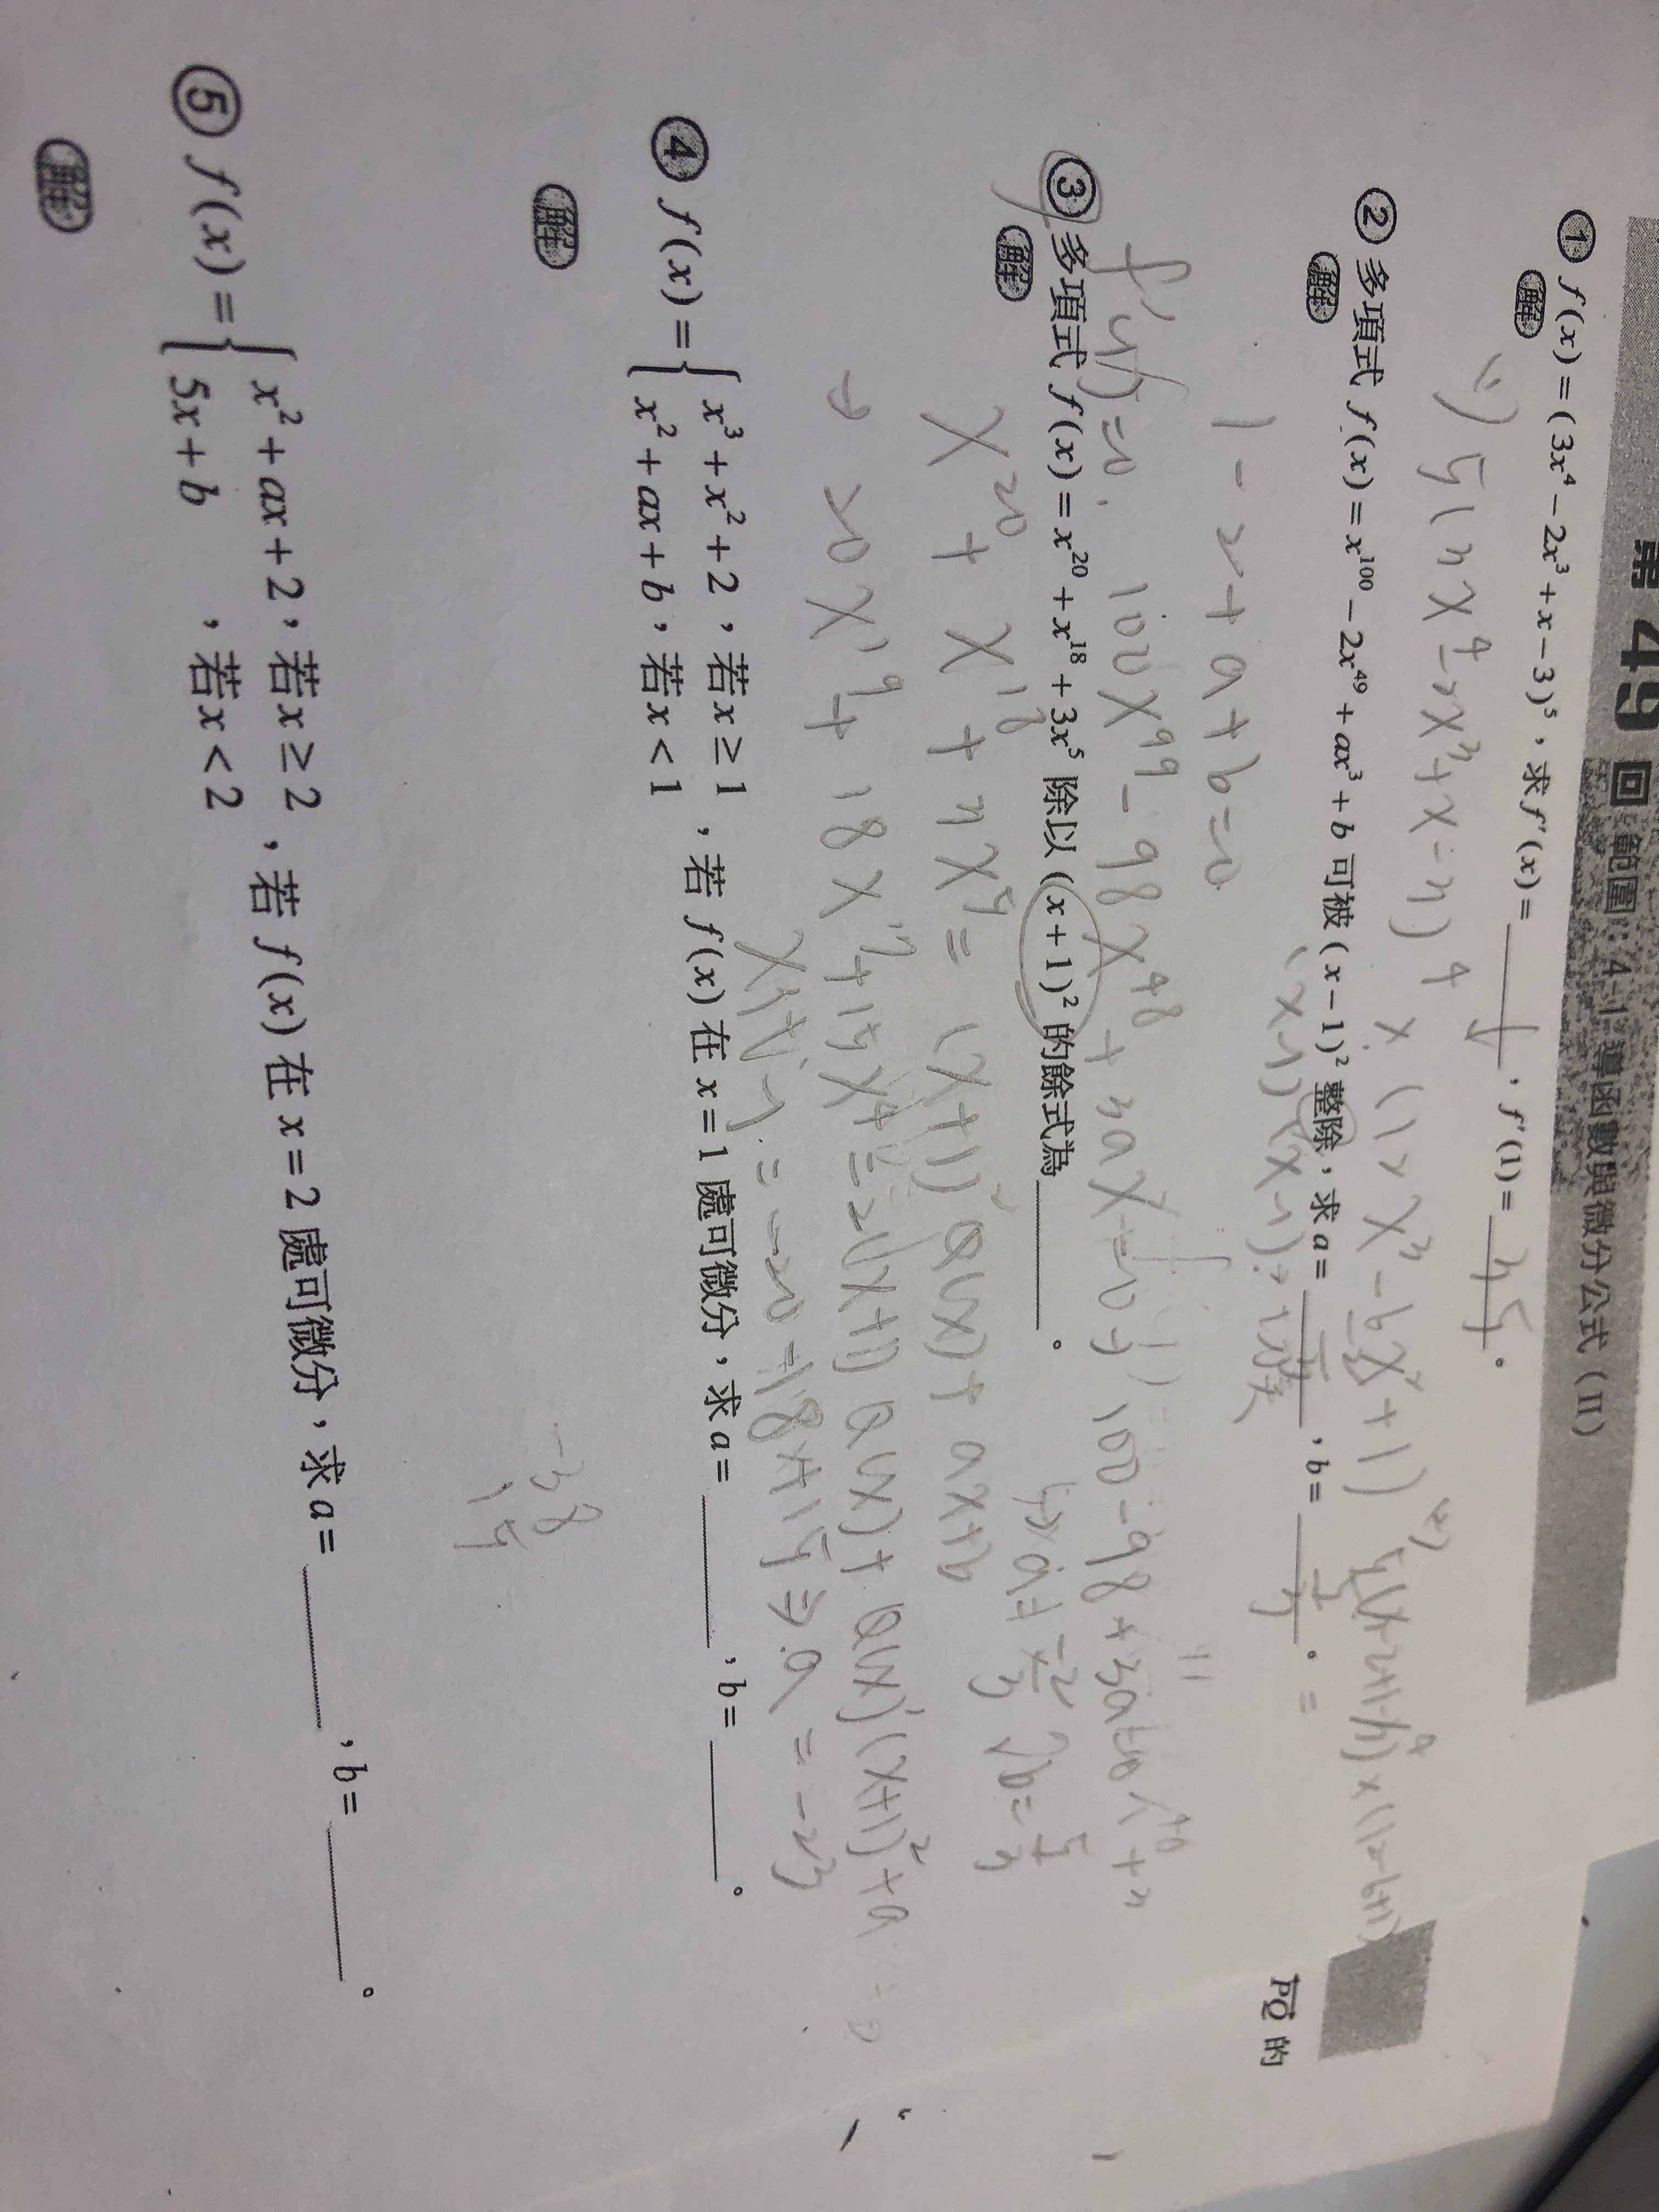 第 49 回 範圍：4-1 導函數與微分公式（II）
① f(x)=(3x⁴-2x³+x-3)⁵，求f'(x)=______，f'(1)=______。
解
5(3x⁴-2x³+x-3)⁴×(12x³-6x²+1)
② 多項式 f(x)=x¹⁰⁰-2x⁴⁹+ax³+b 可被 (x-1)² 整除，求 a=______，b=______。
解
(x-1)(x-1)
1-2+a+b=0
100x⁹⁹-98x⁴⁸+3ax²=0
100-98+3a=0
③ 多項式 f(x)=x²⁰+x¹⁸+3x⁵ 除以 (x+1)² 的餘式為______。
解
x²⁰+x¹⁸+3x⁵=(x+1)²Q(x)+ax+b
→20x¹⁹+18x¹⁷+15x⁴=2(x+1)Q(x)+Q(x)'(x+1)²+a
x代-1=-20-18+15⇒a=-23
④ f(x)={x³+x²+2，若x≥1
x²+ax+b，若x<1，若 f(x) 在 x=1 處可微分，求 a=______，b=______。
解
-38
15
⑤ f(x)={x²+ax+2，若x≥2
5x+b，若x<2，若 f(x) 在 x=2 處可微分，求 a=______，b=______。
解
PQ 的